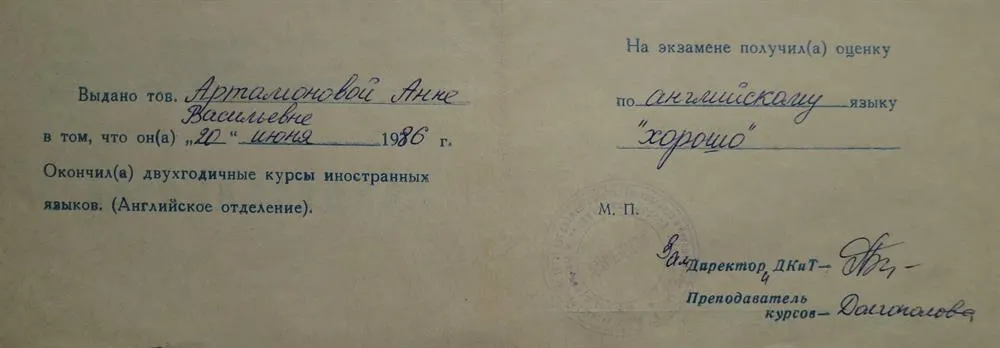 Выдано тов. Артамоновой Анне
Васильевне
в том, что он(а) „20“ июня 1986 г.
Окончил(а) двухгодичные курсы иностранных
языков. (Английское отделение).
На экзамене получил(а) оценку
по английскому языку
"хорошо"
М. П.
Зам Директор ДКиТ—
Преподаватель
курсов— Долгополова